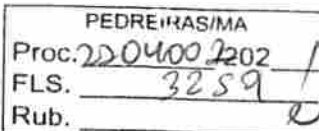 PEDREIRAS/MA
Proc. 2204002202
FLS. 3259
Rub.